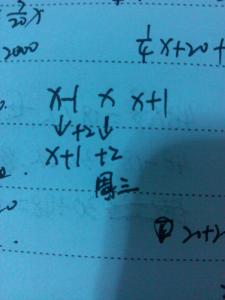 7/20 x
2000
1/4 x+20+
x-1 x x+1
↓+2↓
x+1 +2
周三
20+2